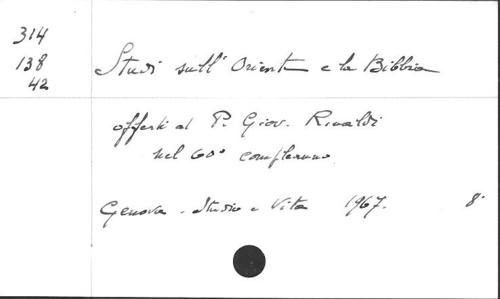 314
138
42
Studi sull'Oriente e la Bibbia
offerti al P. Giov. Rinaldi
nel 60° compleanno
Genova - Studio e Vita 1967. 8°